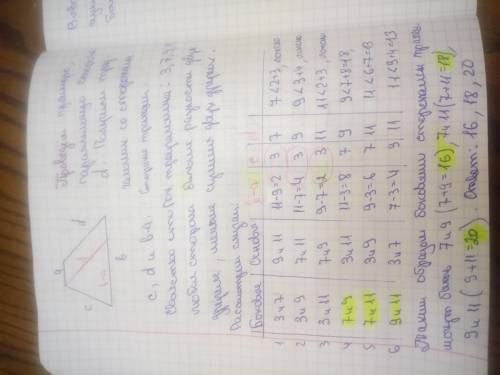 a
c d d
b-a b
Проведём прямую,
параллельную стороне
d. Получим треу-
гольник со сторонами
c, d и b-a. Стороны трапеции: 3,7,9,11
любая сторона больше разности двух
других, меньше суммы двух других.
Рассмотрим случаи:
Боковые Основания b-a c d
1 3 и 7 9 и 11 11-9=2 3 7 7<2+3, ложь
2 3 и 9 7 и 11 11-7=4 3 9 9<3+4, ложь
3 3 и 11 7 и 9 9-7=2 3 11 11<2+3, ложь
4 7 и 9 3 и 11 11-3=8 7 9 9<7+8=18,
5 7 и 11 3 и 9 9-3=6 7 11 11<6+7=13
6 9 и 11 3 и 7 7-3=4 9 11 11<9+4=13
Таким образом боковыми сторонами трапец.
могут быть 7 и 9 (7+9=16), 7 и 11 (7+11=18),
9 и 11 (9+11=20) Ответ: 16, 18, 20